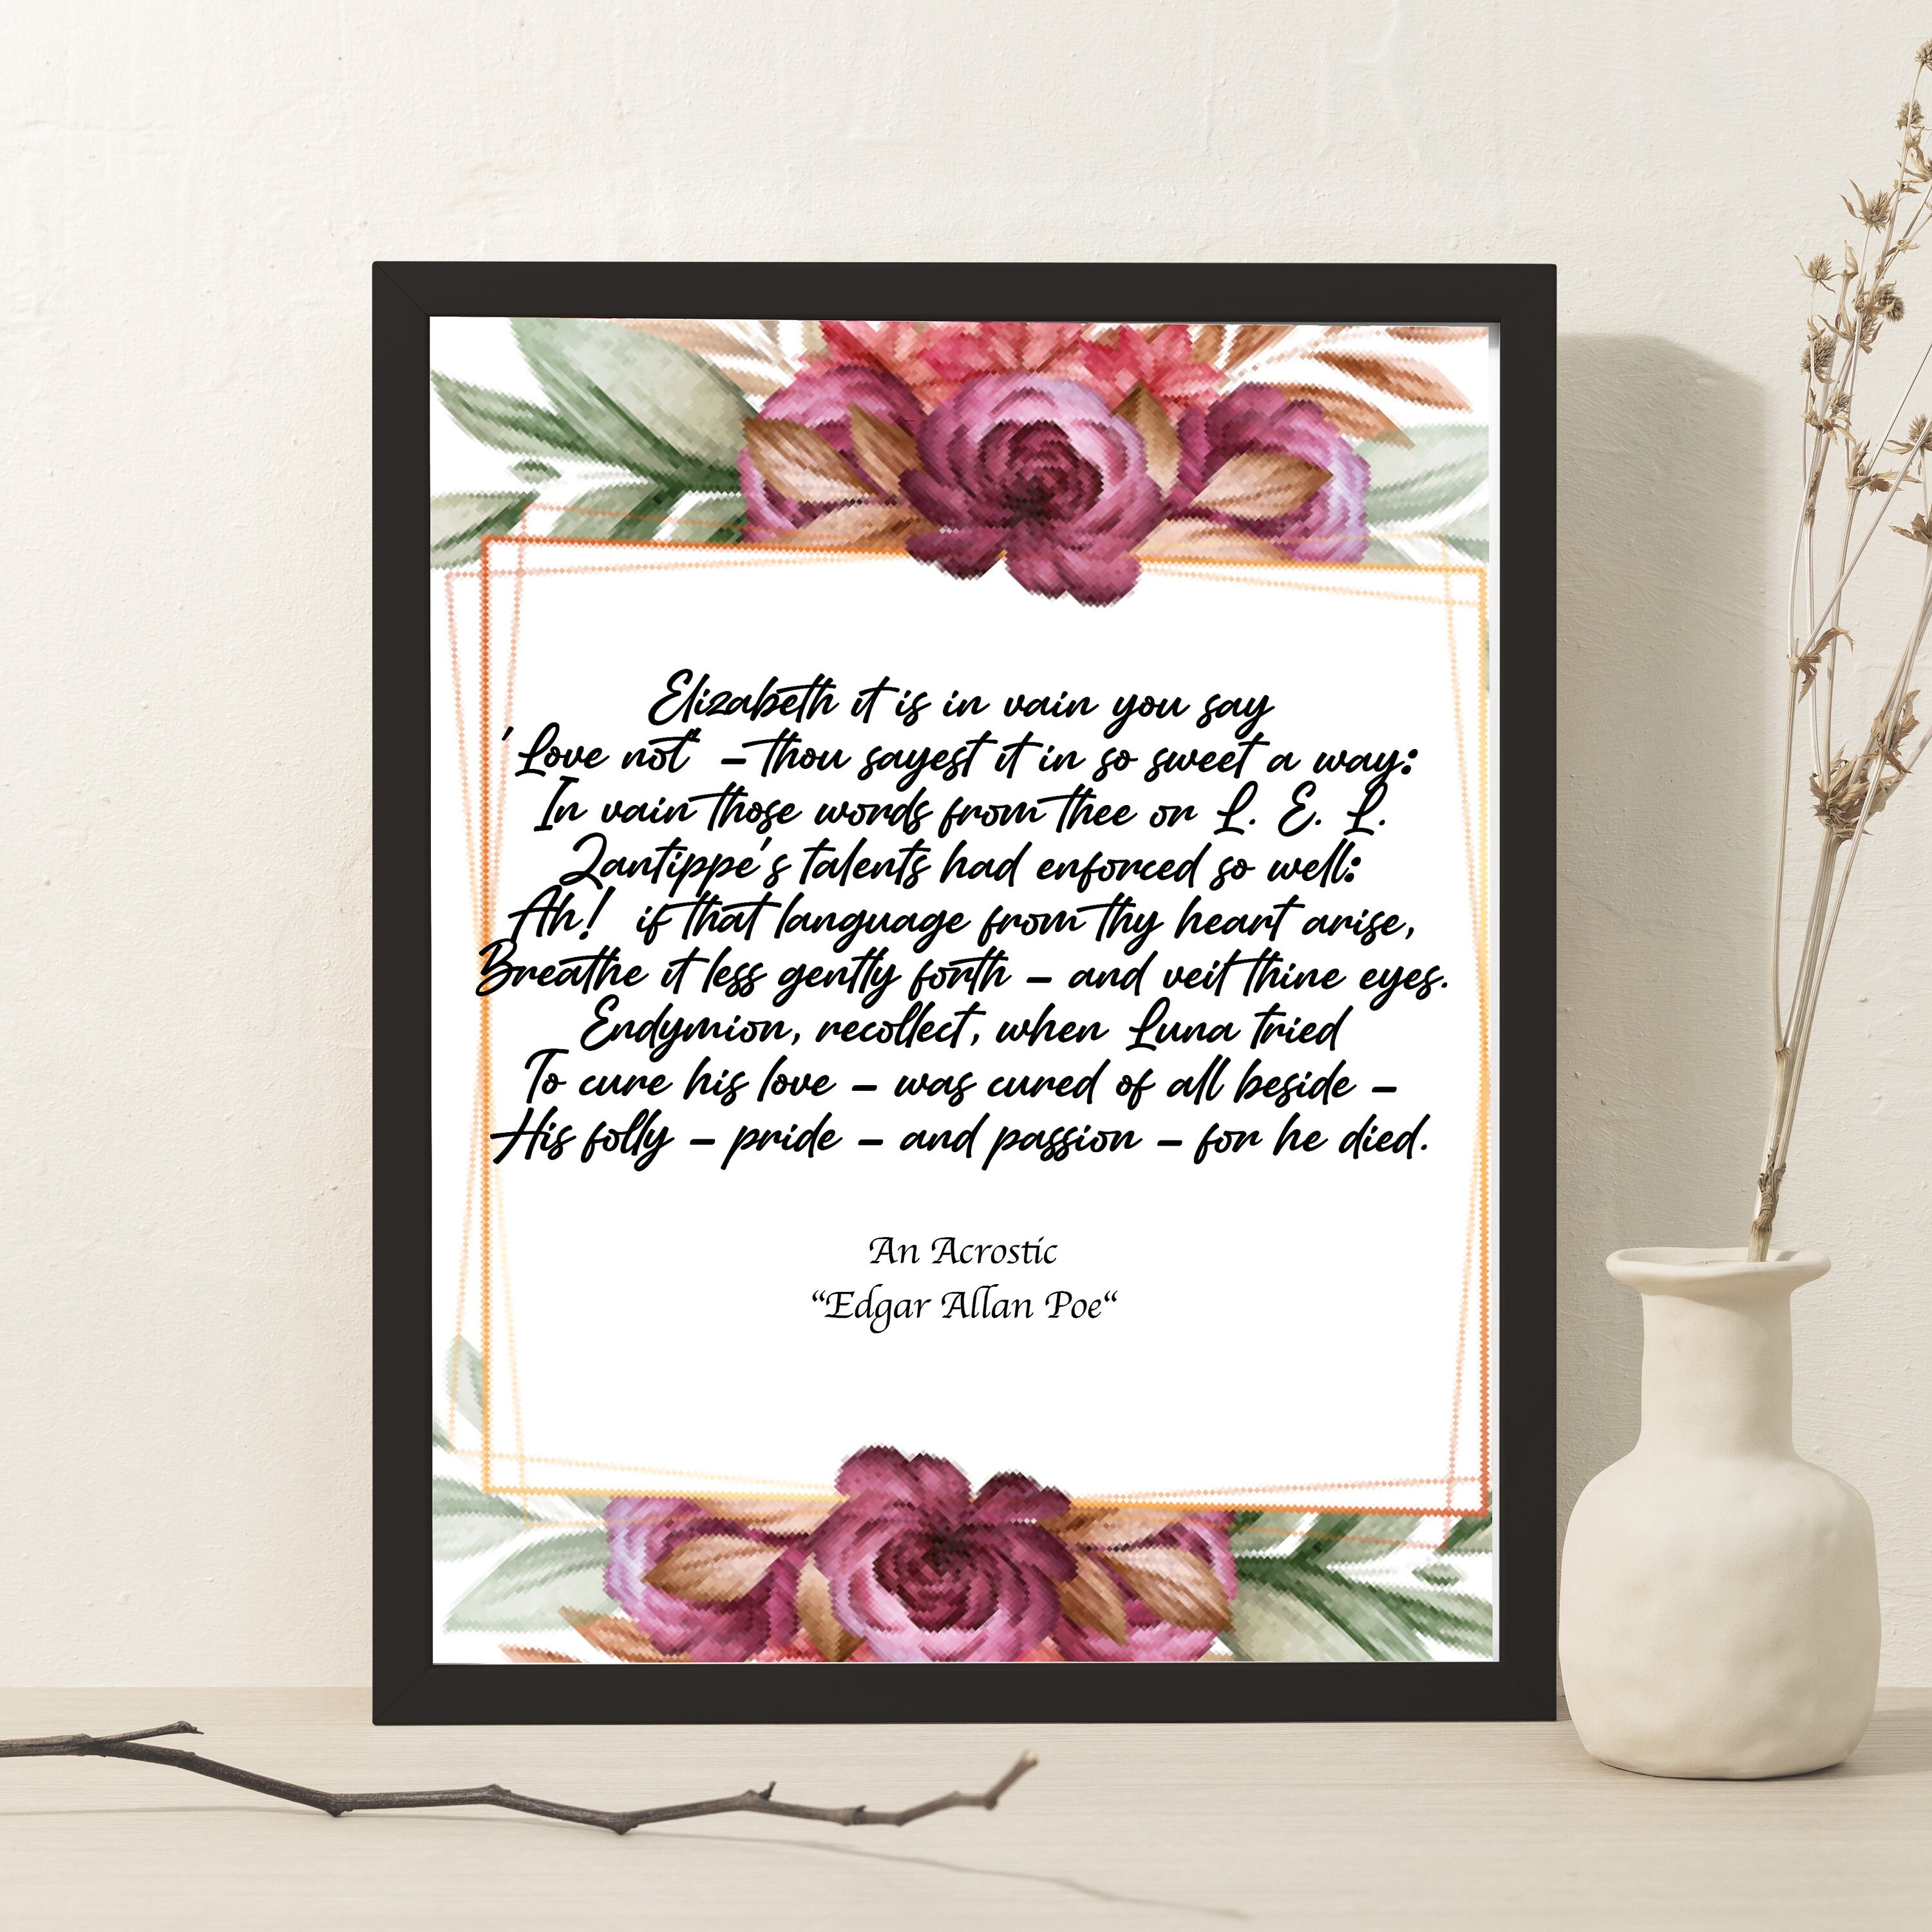 Elizabeth it is in vain you say
'Love not' – thou sayest it in so sweet a way:
In vain those words from thee or L. E. L.
Zantippe's talents had enforced so well:
Ah! if that language from thy heart arise,
Breathe it less gently forth – and veil thine eyes.
Endymion, recollect, when Luna tried
To cure his love – was cured of all beside –
His folly – pride – and passion – for he died.
An Acrostic
“Edgar Allan Poe“